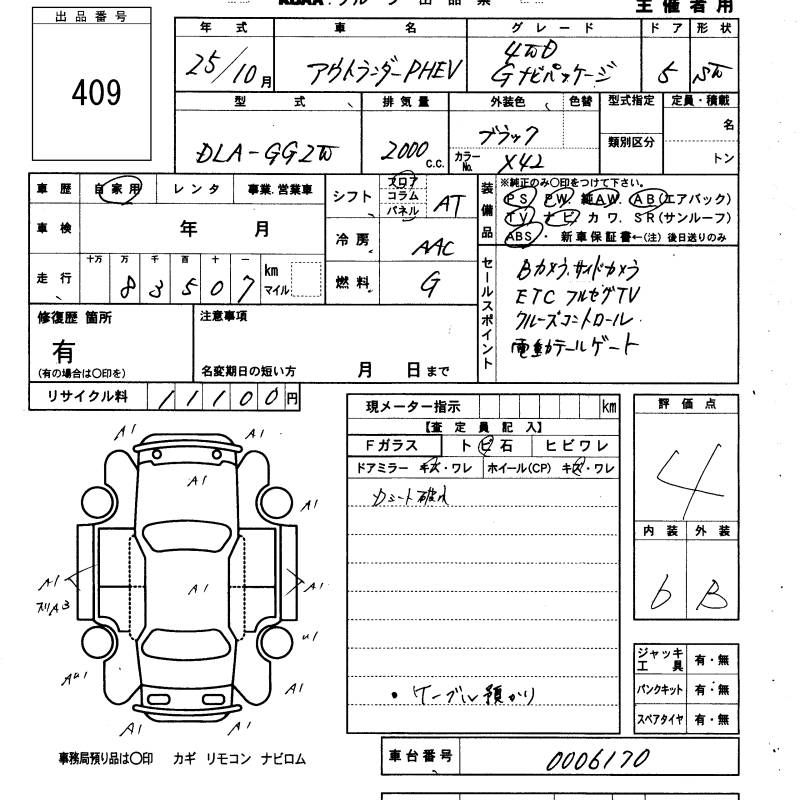 主催者用
出品番号
409
年式 車名 グレード ドア 形状
25/10月 アウトランダーPHEV 4WD Gナビパッケージ 5 SW
型式 排気量 外装色 色替 型式指定 定員・積載
DLA-GG2W 2000 C.C. ブラック 類別区分 名
カラーNo. X42 トン
車歴 自家用 レンタ 事業.営業車
シフト フロア コラム パネル AT
装備品 ※純正のみ○印をつけて下さい。
PS PW. 純AW. AB(エアバック)
TV ナビ カワ. SR(サンルーフ)
ABS・ 新車保証書←(注) 後日送りのみ
車検 年 月
冷房 AAC
走行 十万 万 千 百 十 一
83507 km マイル
燃料 G
セールスポイント
Bカメラ.サイドカメラ
ETC フルセグTV
クルーズコントロール
電動テールゲート
修復歴 箇所
有
(有の場合は○印を)
注意事項
名変期日の短い方 月 日まで
リサイクル料 11100円
現メーター指示 km
【査定員記入】
Fガラス トビ石 ヒビワレ
ドアミラー キズ・ワレ ホイール(CP) キズ・ワレ
Dシート破れ
・ケーブル預かり
評価点
4
内装 外装
b B
ジャッキ工具 有・無
パンクキット 有・無
スペアタイヤ 有・無
A1 A1
A1
A1
A1 A1 A1
A3
A1
A1 A1
事務局預り品は○印 カギ リモコン ナビロム
車台番号 0006170